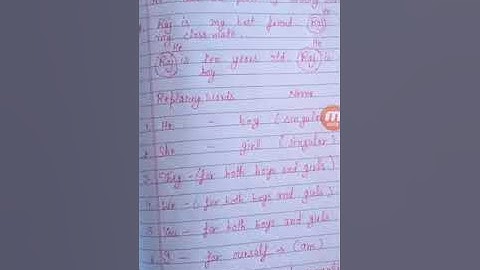 Raj is my best friend. Raj
my class mate.
He
He
Raj is ten years old. Raj is
boy
Replacing words Noun
1. He - boy (singular
2. She - girl (singular)
3. They - (for both boys and girls)
4. We - (for both boys and girls)
5. You - for both boys and girls
- for ourself s (am)